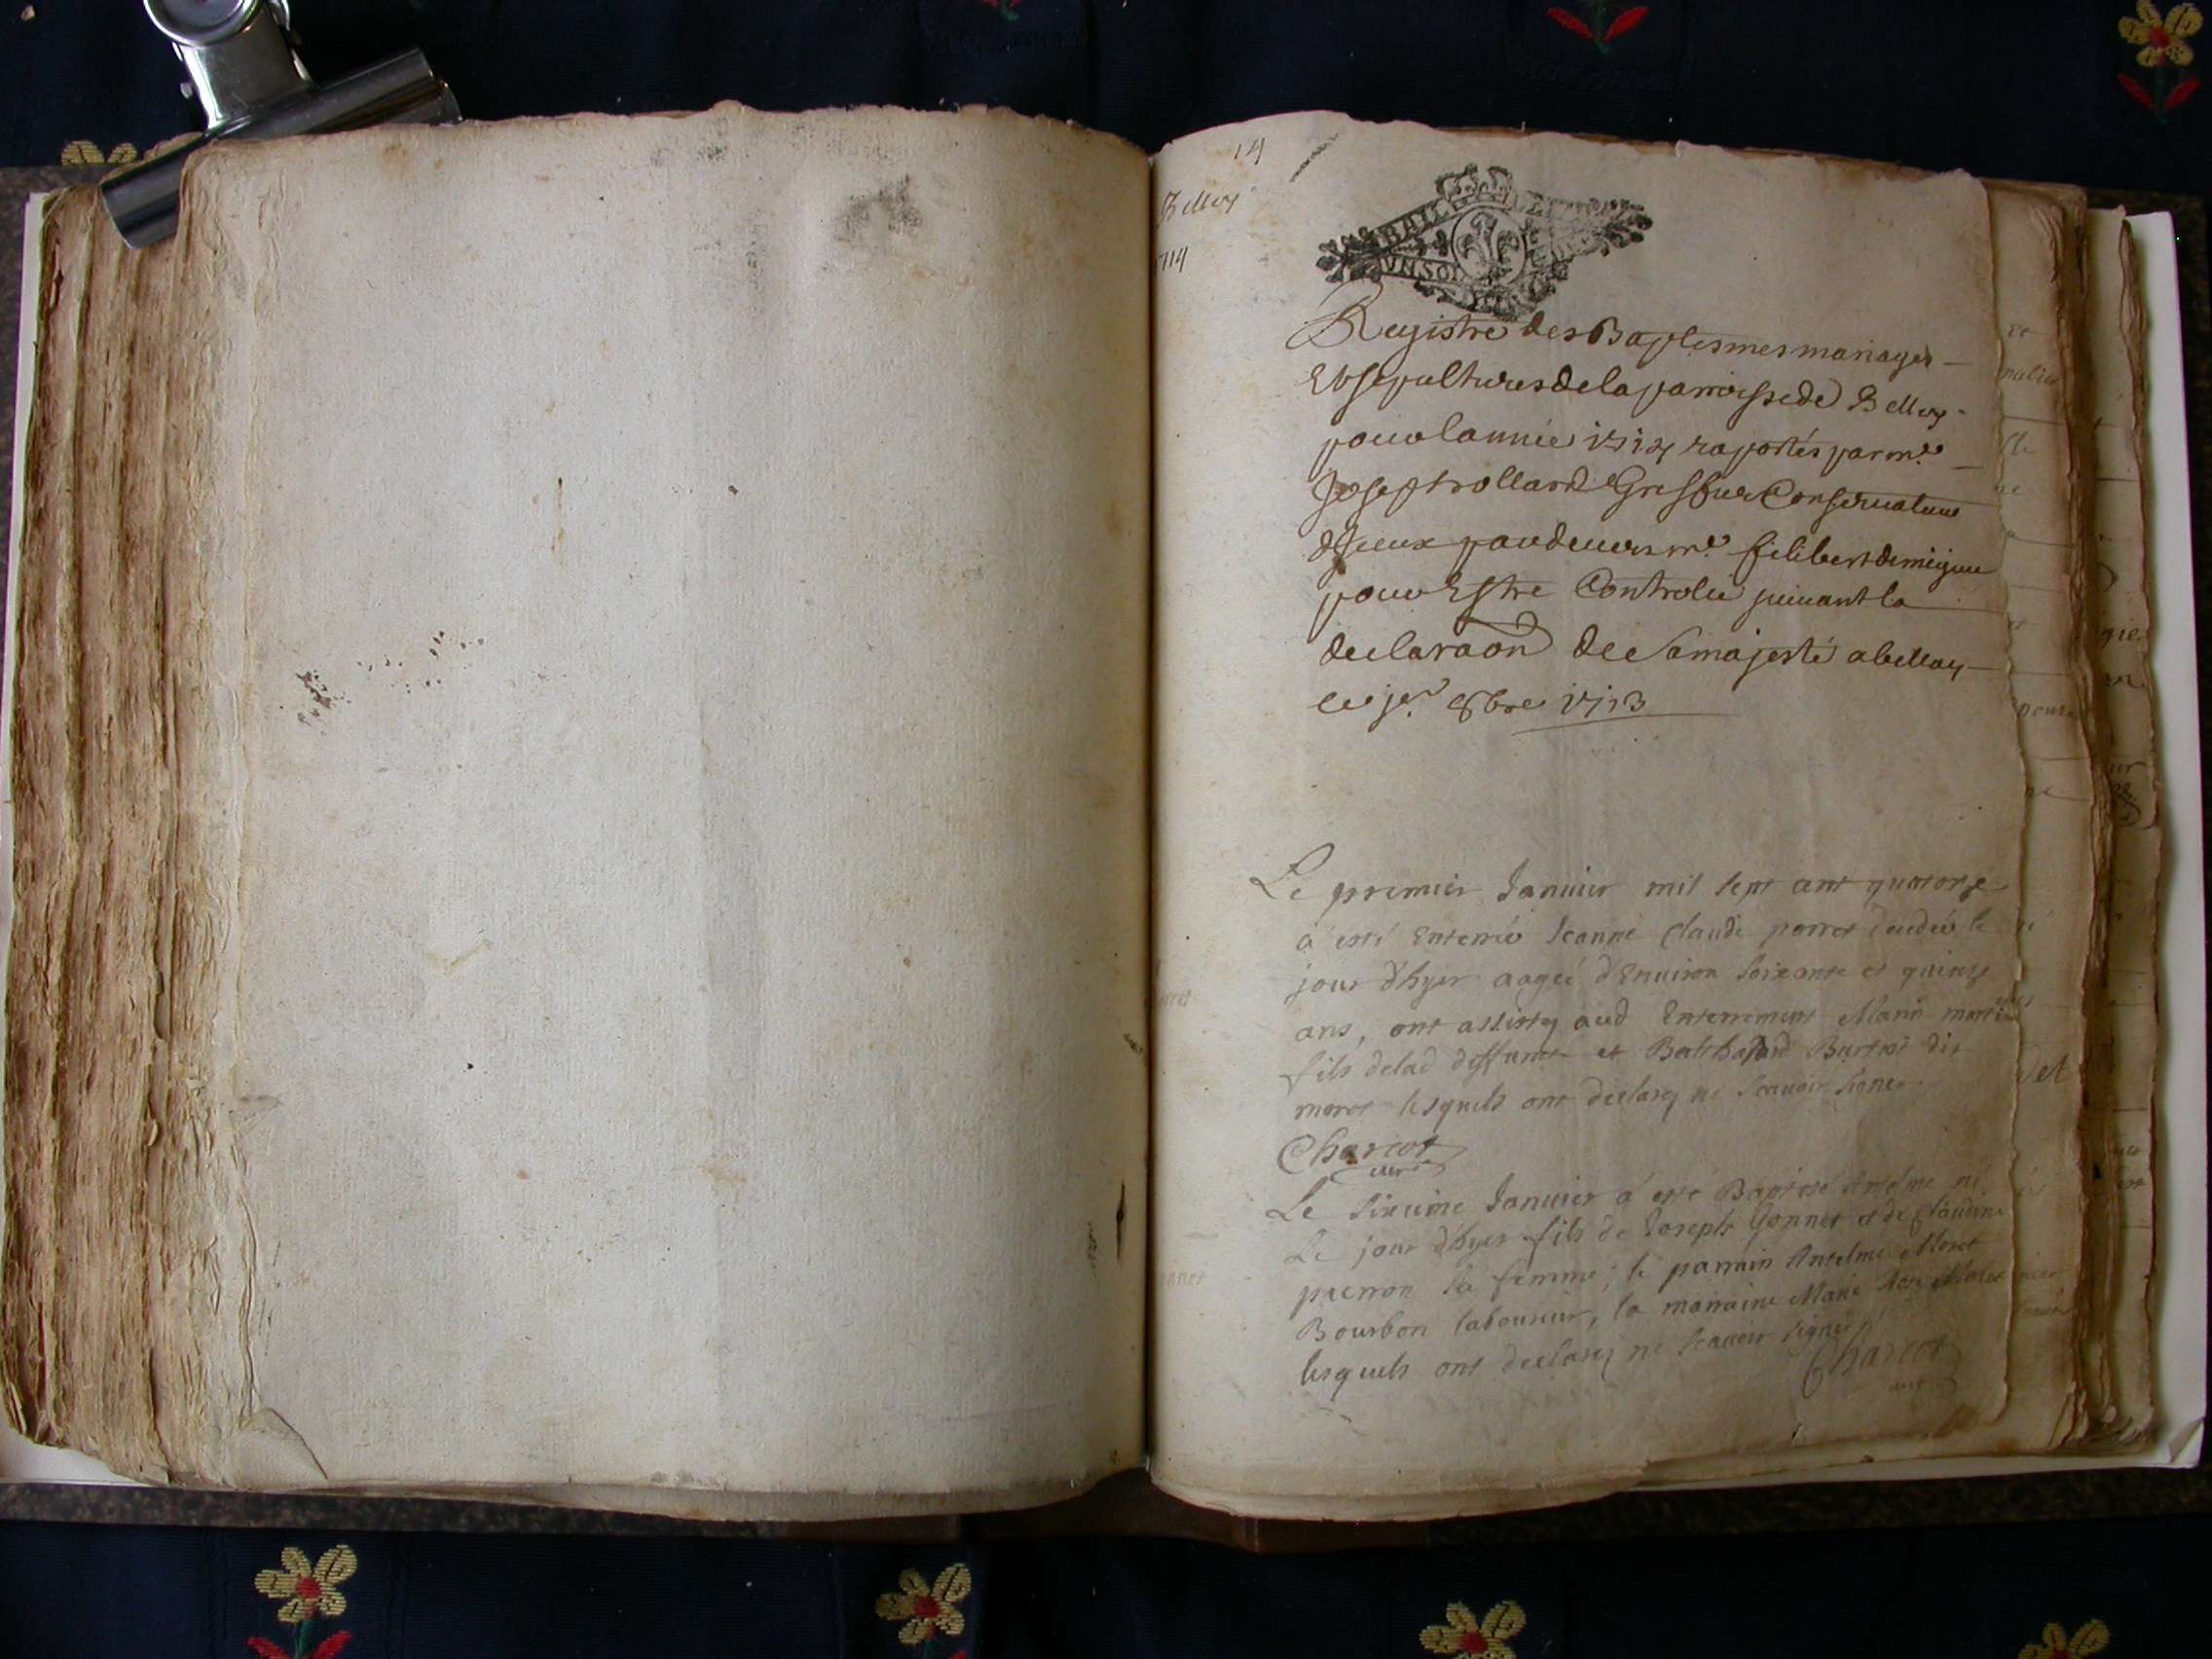 14
Belley
714
UN SOL
Registre des Baptesmes mariages
Et sepultures de la parroisse de Belley
pour lannée 1714 raportés par me
Joseph rolland Greffier Conservateur
diceux pardevers me filibert demigieu
pour Estre Controlee suivant la
declaraon de Sa majesté a belley
le jer 8bre 1713
Le premier Januier mil sept cent quatorze
a esté Enterrée Jeanne Claude porret decedée le
jour d'hyer aagée d'Enuiron soixante et quinze
ans, ont assisté aud Enterrement Marin
fils de lad deffuncte et Balthasard dit
moret lesquels ont declaré ne scauoir signer.
Charcot
curé
Le sixieme Januier a esté Baptisé Antelme né
Le jour d'hyer fils de Joseph Gonnet et de Claudine
pierron sa femme; le parrain Antelme Moret
Bourbon laboureur, la marraine Marie
lesquels ont declaré ne scauoir signer
Charcot
curé